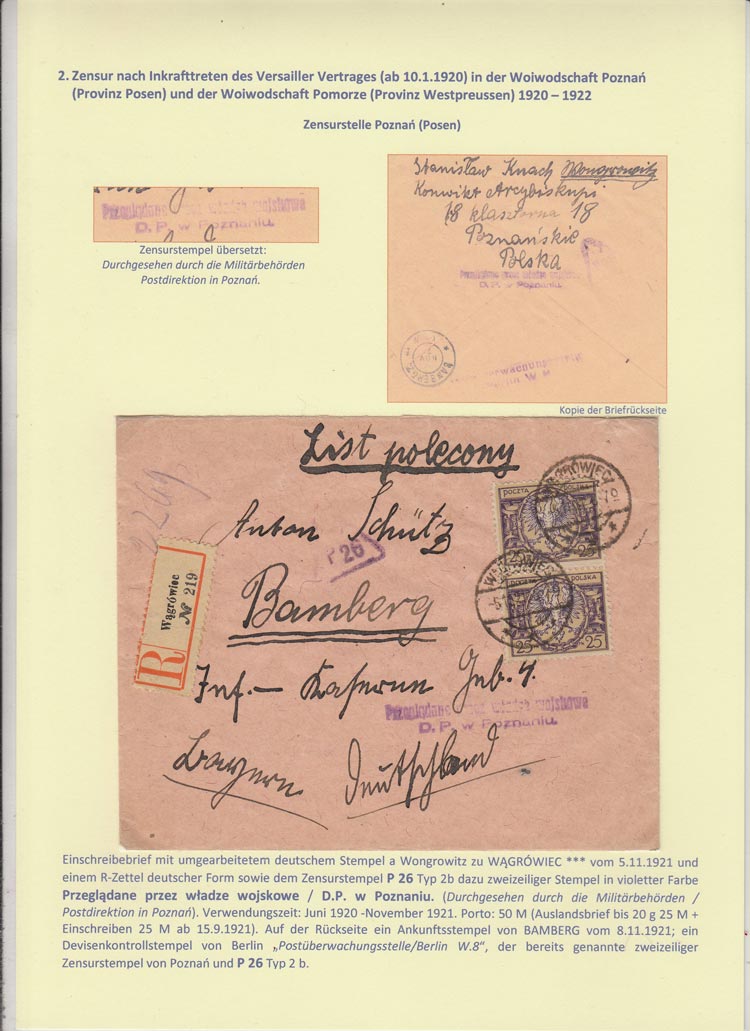 2. Zensur nach Inkrafttreten des Versailler Vertrages (ab 10.1.1920) in der Woiwodschaft Poznań
(Provinz Posen) und der Woiwodschaft Pomorze (Provinz Westpreussen) 1920 – 1922
Zensurstelle Poznań (Posen)
Przeglądane przez władze wojskowe
D. P. w Poznaniu.
Zensurstempel übersetzt:
Durchgesehen durch die Militärbehörden
Postdirektion in Poznań.
Stanisław Knach Wongrowitz
Konwikt Arcybiskupi
18 klasztorna 18
Poznańskie
Polska
Przeglądane przez władze
D. P. w Poznaniu.
BAMBERG 2
Berlin W 8
Kopie der Briefrückseite
List polecony
Anton Schütz
P 26
Bamberg
Inf.- Kaserne Geb. 4.
Bayern Deutschland
R
Wągrówiec
№ 219
POCZTA POLSKA
25 25
WĄGRÓWIEC
POCZTA POLSKA
25 25
WĄGRÓWIEC
Przeglądane przez władze wojskowe
D. P. w Poznaniu.
Einschreibebrief mit umgearbeitetem deutschem Stempel a Wongrowitz zu WĄGRÓWIEC *** vom 5.11.1921 und
einem R-Zettel deutscher Form sowie dem Zensurstempel P 26 Typ 2b dazu zweizeiliger Stempel in violetter Farbe
Przeglądane przez władze wojskowe / D.P. w Poznaniu. (Durchgesehen durch die Militärbehörden /
Postdirektion in Poznań). Verwendungszeit: Juni 1920 -November 1921. Porto: 50 M (Auslandsbrief bis 20 g 25 M +
Einschreiben 25 M ab 15.9.1921). Auf der Rückseite ein Ankunftsstempel von BAMBERG vom 8.11.1921; ein
Devisenkontrollstempel von Berlin „Postüberwachungsstelle/Berlin W.8“, der bereits genannte zweizeiliger
Zensurstempel von Poznań und P 26 Typ 2 b.